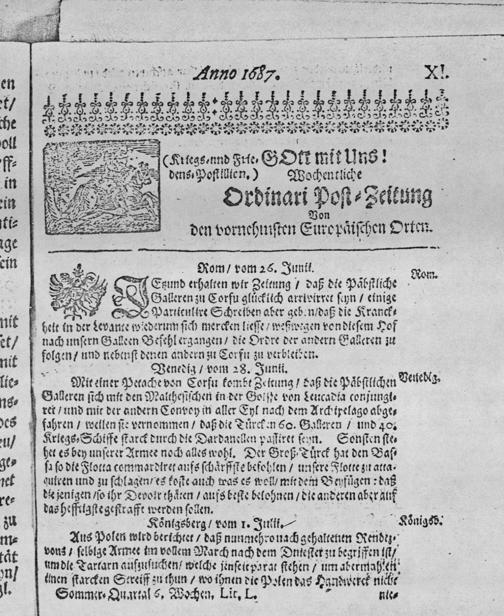 en
et/
che
voll
yff-
in
ein
nti-
age
sein
mit
set/
mit
lie-
ns-
des
eu/
ge-
net
re-
zu
m-
tät
yn/
gl.
Anno 1687.
XI.
(Kriegs- und Frie-
dens-Postilien.)
GOtt mit Uns!
Wochentliche
Ordinari Post-Zeitung
Von
den vornehmsten Europäischen Orten.
Rom/ vom 26. Junii.
Rom.
JEtzund erhalten wir Zeitung/ daß die Päbstliche
Galleren zu Corfu glücklich arrivirret seyn/ einige
Particulire Schreiben aber geb.n/ daß die Kranck-
heit in der Levante wiederum sich mercken liesse/ weßwegen von diesem Hof
nach unsern Galleen Befehl ergangen/ die Ordre der andern Galleren zu
folgen/ und nebenst denen andern zu Corfu zu verbleiben.
Venedig/ vom 28. Junii.
Venedig.
Mit einer Petache von Corfu kombt Zeitung/ daß die Päbstlichen
Galleren sich mit den Malthesischen in der Golffe von Leucadia conjungi-
ret/ und mit der andern Convoy in aller Eyl nach dem Archipelago abge-
fahren/ weilen sie vernommen/ daß die Türcken 60. Galleren/ und 40.
Kriegs-Schiffe starck durch die Dardanellen passiret seyn. Sonsten ste-
het es bey unserer Armee noch alles wohl. Der Groß-Türck hat den Bas-
sa so die Flotta commardiret aufs schärffste befohlen/ unsere Flotte zu atta-
quiren und zu schlagen/ es koste auch was es woll/ mit dem Beyfügen: daß
die jenigen/ so ihr Devoir thäten/ aufs beste belohnen/ die anderen aber auf
das hefftigste gestrafft werden sollen.
Königsberg/ vom 1. Julii.
Königsb.
Aus Polen wird berichtet/ daß nunmehro nach gehaltenen Rendez-
vons/ selbige Armee im vollem March nach dem Dniester zu begriffen ist/
um die Tartarn aufzusuchen/ welche jenseit parat stehen/ um abermahl
einen starcken Streiff zu thun/ wo ihnen die Polen das Handwerck nicht
Sommer-Quartal 6. Wochen. Lit. L.
nie-